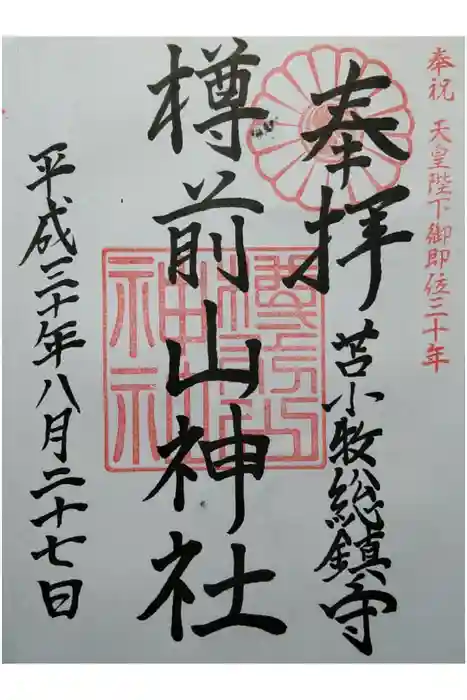 奉祝 天皇陛下御即位三十年
奉拝
苫小牧総鎮守
樽前山神社
樽前山神社
平成三十年八月二十七日